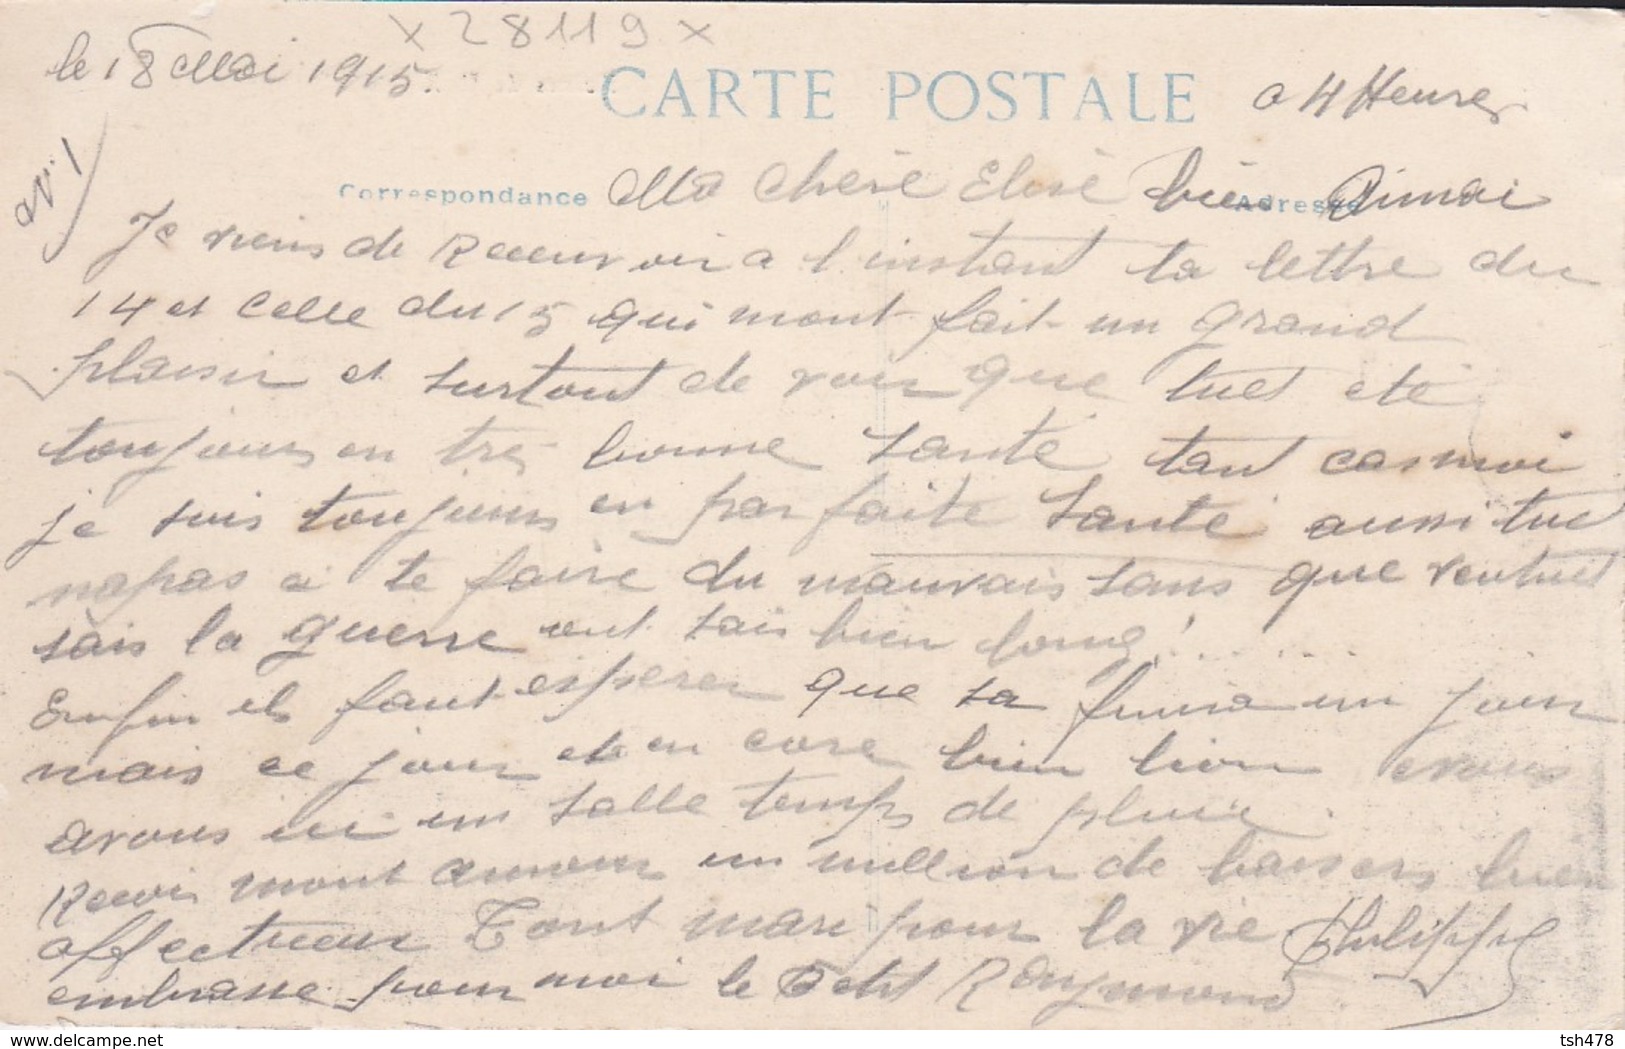 x 28119 x
le 18 Mai 1915.
CARTE POSTALE
a 4 Heures
N° 1
Correspondance
Adresse
Ma chère Elise bien Aimai
Je viens de Receuvoir a l'instant ta lettre du
14 et celle du 15 qui mont fait un grand
plaisir et surtout de voir que tuet ete
toujours en tres bonne santé tant casmoi
je suis toujours en parfaite santé aussi tue
napas a te faire du mauvais sans que veutues
sais la guerre ont sais bien long! .....
Enfin il faut esperer que sa finira un jour
mais ce jour ete en core bien lion
avons ici un salle temps de pluie.
Recoi mont amour un million de baisers bien
affectueux Tont mari pour la vie Philippe
embrasse pour moi le Petit Raymond
www.delcampe.net
tsh478